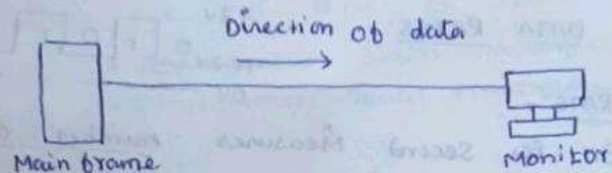 Direction of data
Main frame
Monitor